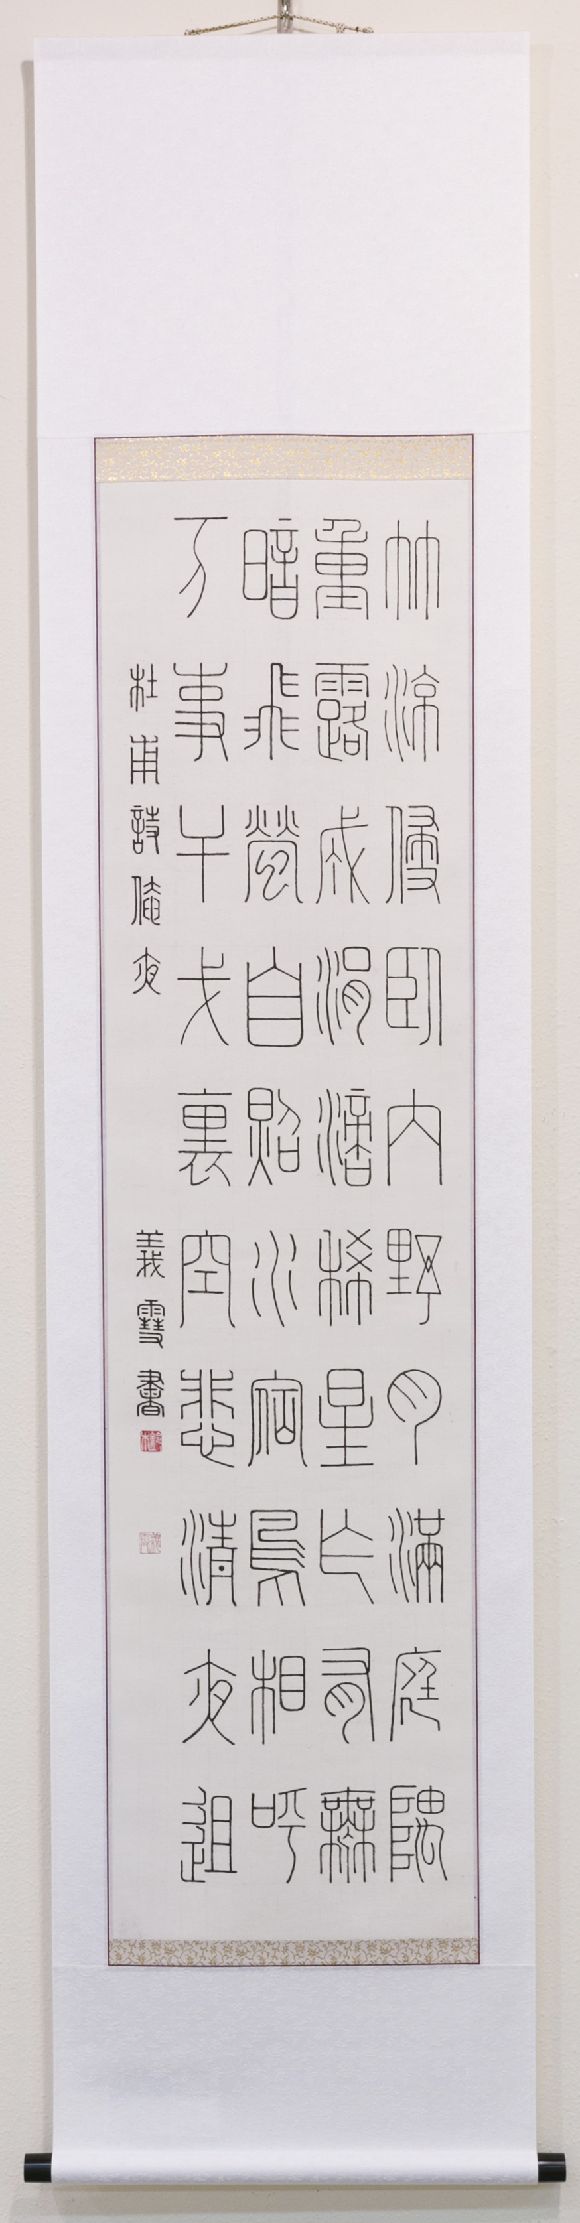 竹涼侵臥內野月滿庭隅
重露成涓滴稀星乍有無
暗飛螢自照水宿鳥相呼
万事干戈裏空悲清夜徂
杜甫詩倦夜
義雪書